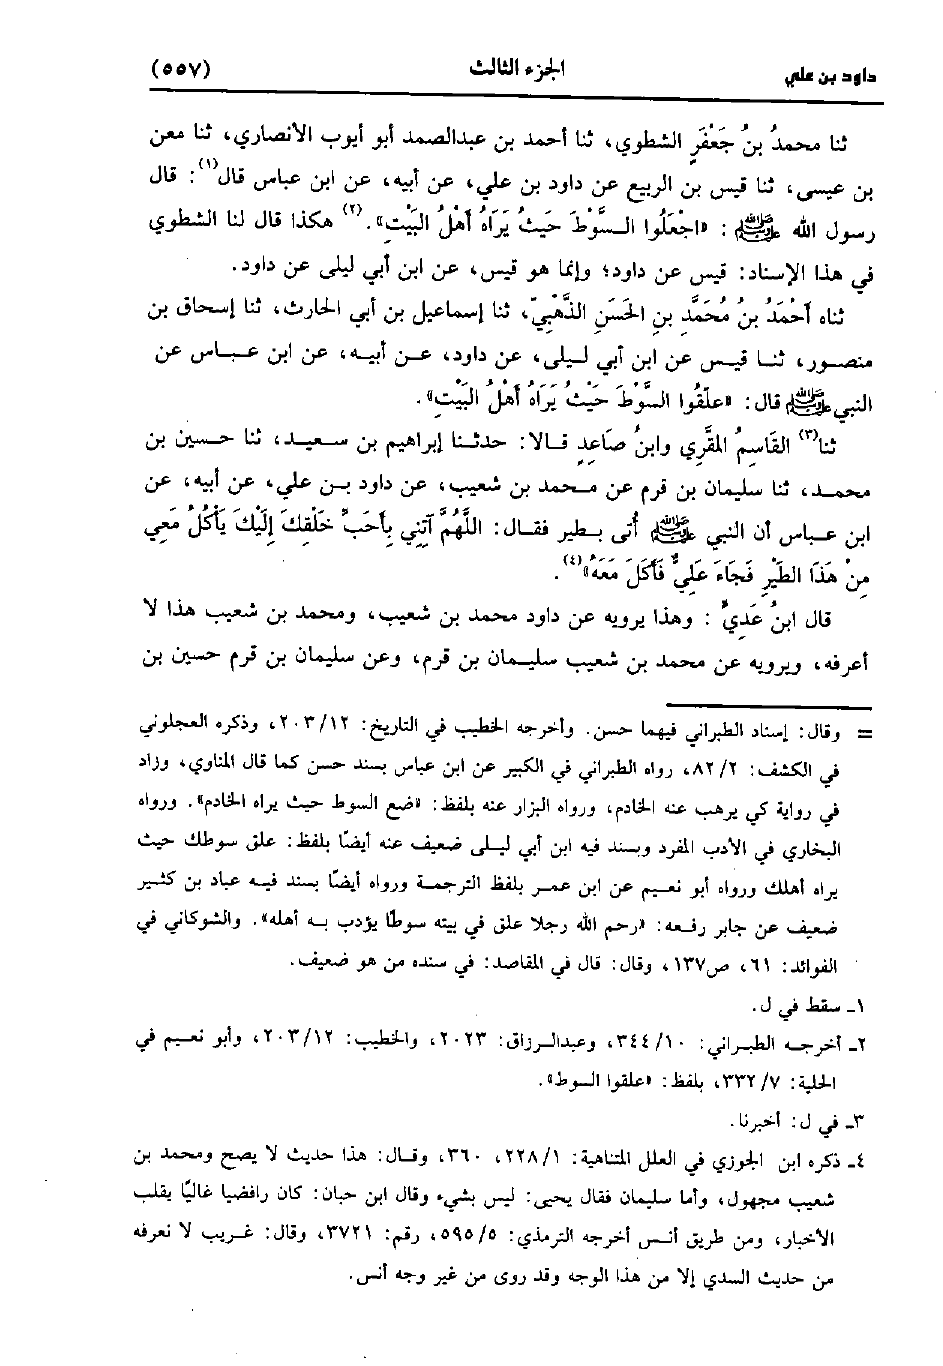 داود بن علي الجزء الثالث (٥٥٧)
ثنا محمدُ بنُ جَعْفَرٍ الشطوي، ثنا أحمد بن عبدالصمد أبو أيوب الأنصاري، ثنا معن
بن عيسى، ثنا قيس بن الربيع عن داود بن علي، عن أبيه، عن ابن عباس قال(١): قال
رسول الله ﷺ: «اجْعَلُوا السَّوْطَ حَيْثُ يَرَاهُ أَهْلُ البَيْتِ».(٢) هكذا قال لنا الشطوي
في هذا الإسناد: قيس عن داود؛ وإنما هو قيس، عن ابن أبي ليلى عن داود.
ثناه أَحْمَدُ بنُ مُحَمَّدِ بنِ الحَسَنِ الذَّهْبِيّ، ثنا إسماعيل بن أبي الحارث، ثنا إسحاق بن
منصور، ثنا قيس عن ابن أبي ليلى، عن داود، عن أبيه، عن ابن عباس عن
النبي ﷺ قال: «علِّقُوا السَّوْطَ حَيْثُ يَرَاهُ أَهْلُ البَيْتِ».
ثنا(٣) القَاسِمُ المقَّرِي وابنُ صَاعِدٍ قالا: حدثنا إبراهيم بن سعيد، ثنا حسين بن
محمد، ثنا سليمان بن قرم عن محمد بن شعيب، عن داود بن علي، عن أبيه، عن
ابن عباس أن النبي ﷺ أُتى بطير فقال: اللَّهُمَّ آتِنِي بِأَحَبِّ خَلْقِكَ إِلَيْكَ يَأْكُلُ مَعِي
مِنْ هَذَا الطَّيْرِ فَجَاءَ عَلِيٌّ فَأَكَلَ مَعَهُ»(٤).
قال ابنُ عَدِيٍّ: وهذا يرويه عن داود محمد بن شعيب، ومحمد بن شعيب هذا لا
أعرفه، ويرويه عن محمد بن شعيب سليمان بن قرم، وعن سليمان بن قرم حسين بن
= وقال: إسناد الطبراني فيهما حسن. وأخرجه الخطيب في التاريخ: ٢٠٣/١٢، وذكره العجلوني
في الكشف: ٨٢/٢، رواه الطبراني في الكبير عن ابن عباس بسند حسن كما قال المناوي، وزاد
في رواية كي يرهب عنه الخادم، ورواه البزار عنه بلفظ: «ضع السوط حيث يراه الخادم». ورواه
البخاري في الأدب المفرد وبسند فيه ابن أبي ليلى ضعيف عنه أيضًا بلفظ: علق سوطك حيث
يراه أهلك ورواه أبو نعيم عن ابن عمر بلفظ الترجمة ورواه أيضًا بسند فيه عباد بن كثير
ضعيف عن جابر رفعه: «رحم الله رجلا علق في بيته سوطًا يؤدب به أهله». والشوكاني في
الفوائد: ٦١، ص١٣٧، وقال: قال في المقاصد: في سنده من هو ضعيف.
١ـ سقط في ل.
٢ـ أخرجه الطبراني: ٣٤٤/١٠، وعبدالرزاق: ٢٠٢٣، والخطيب: ٢٠٣/١٢، وأبو نعيم في
الحلية: ٣٣٢/٧، بلفظ: «علقوا السوط».
٣ـ في ل: أخبرنا.
٤ـ ذكره ابن الجوزي في العلل المتناهية: ٢٢٨/١، ٣٦٠، وقال: هذا حديث لا يصح ومحمد بن
شعيب مجهول، وأما سليمان فقال يحيى: ليس بشيء وقال ابن حبان: كان رافضيا غاليًا يقلب
الأخبار، ومن طريق أنس أخرجه الترمذي: ٥٩٥/٥، رقم: ٣٧٢١، وقال: غريب لا نعرفه
من حديث السدي إلا من هذا الوجه وقد روى من غير وجه أنس.